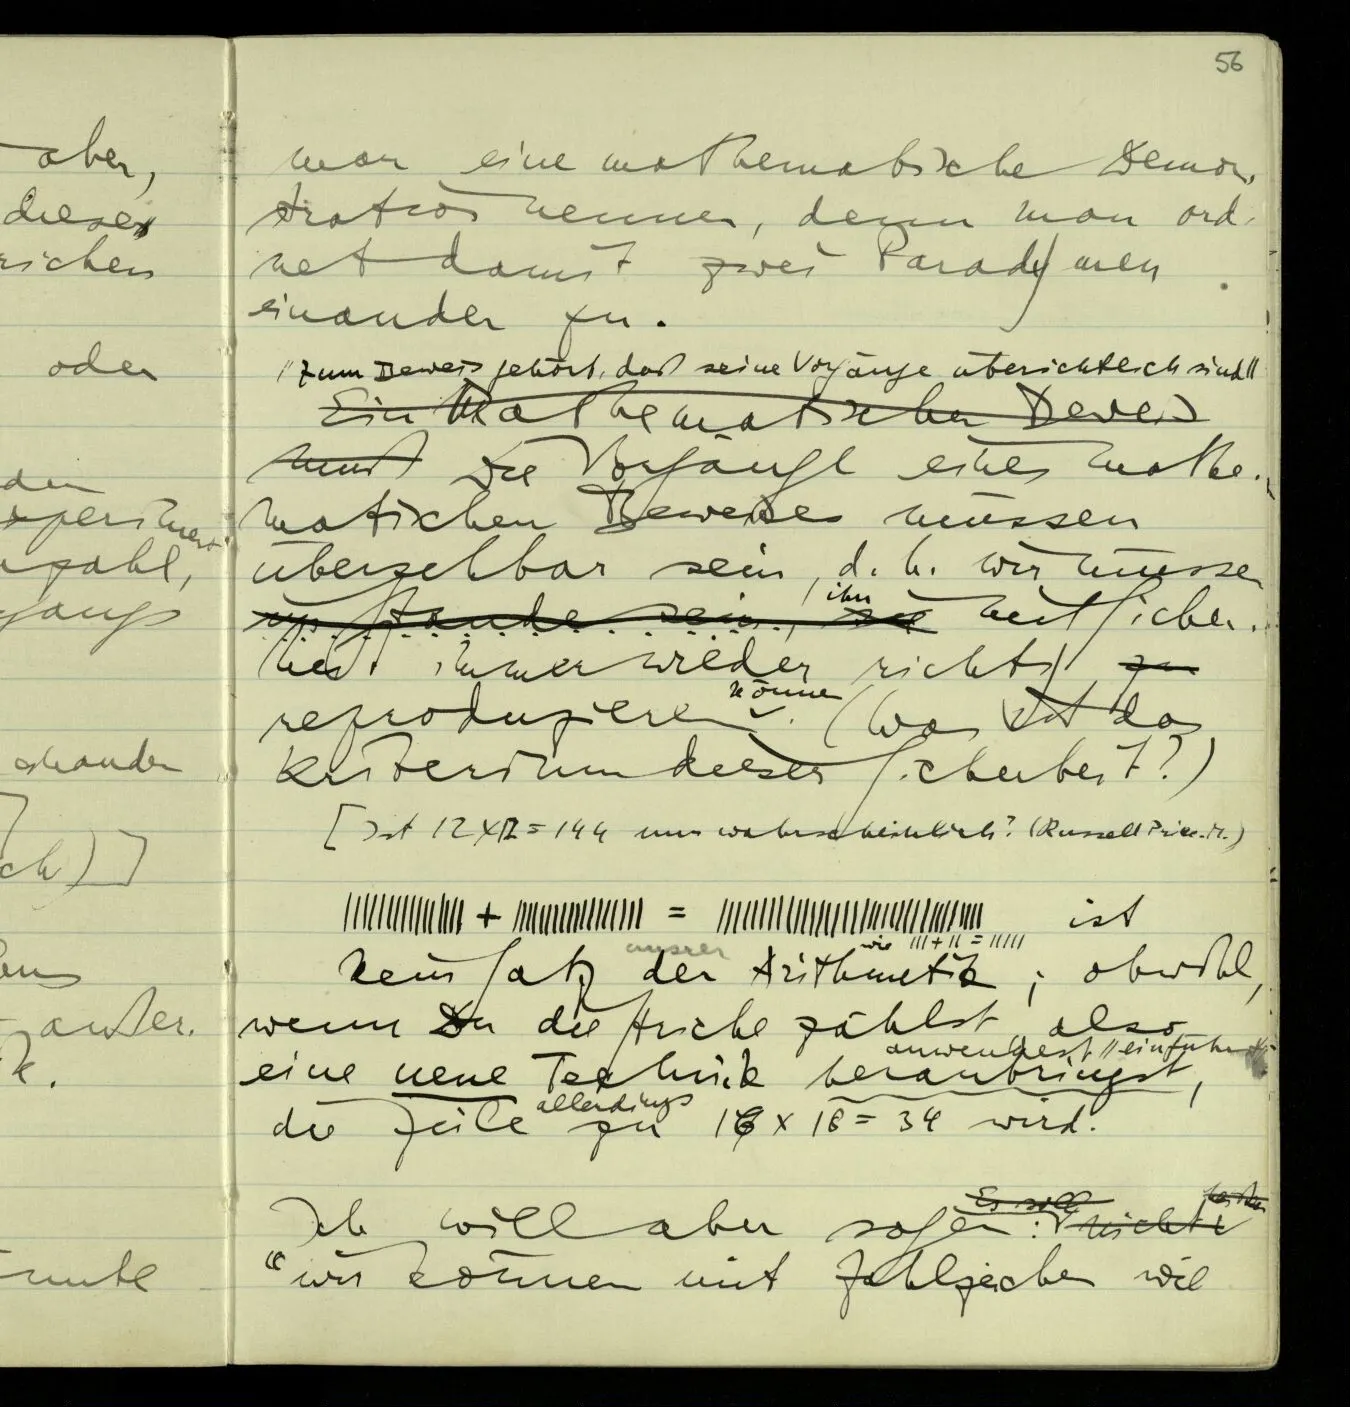 56
aber,
dieser
oder
den
einander
ch) ]
außer.
k.
man eine mathematische Demon-
stration nennen, denn man ord-
net damit zwei Paradymen
einander zu.
"Zum Beweis gehört, daß seine Vorgänge übersichtlich sind"
Ein Mathematischer Beweis
muß Die Vorgänge eines mathe-
matischen Beweises müssen
übersehbar sein, d.h. wir müssen
im Stande sein, sie ihn mit Sicher-
heit immer wieder richtig zu
reproduzieren können. (Was ist das
Kriterium dieser Sicherheit?)
[Ist 12 x 12 = 144 nur wahrscheinlich? (Russell Princ. M.)
|||||||||||||||| + |||||||||||||||||| = |||||||||||||||||||||||||||||||||| ist
unsrer wie ||| + || = |||||
kein Satz der Arithmetik; obwohl,
wenn Du die Striche zählst also
anwendest "einführst"
eine neue Technik heranbringst,
die Zeile allerdings zu 16 x 18 = 34 wird.
Es soll
Ich will aber sagen: nicht
"wir können mit Zahlzeichen wie